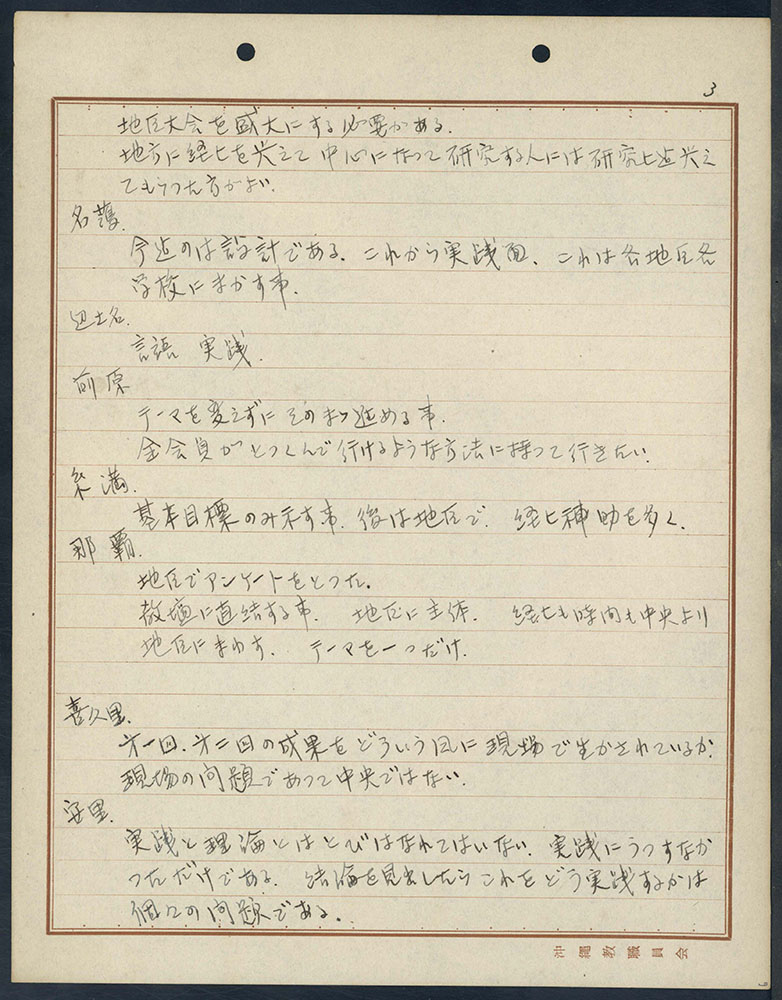 3
地区大会を盛大にする必要がある.
地方に経ヒを与えて中心になって研究する人には研究ヒ迄与え
てもらった方がよい.
名護.
今迄のは設計である. これから実践面. これは各地区各
学校にまかす事.
辺土名.
言語 実践.
前原
テーマを変えずにそのまゝ進める事.
全会員がとっくんで行けるような方法に持って行きたい.
糸満.
基本目標のみ示す事. 後は地区で. 経ヒ補助を多く.
那覇.
地区でアンケートをとった.
教壇に直結する事. 地区に主体. 経ヒも時間も中央より
地区にまわす. テーマを一つだけ.
喜久里.
才一回. 才二回の成果をどういう風に現場で生かされているか.
現場の問題であって中央ではない.
安里.
実践と理論とはとびはなれてはいない. 実践にうつすなか
っただけである. 結論を見出したらこれをどう実践するかは
個々の問題である.
沖縄教職員会